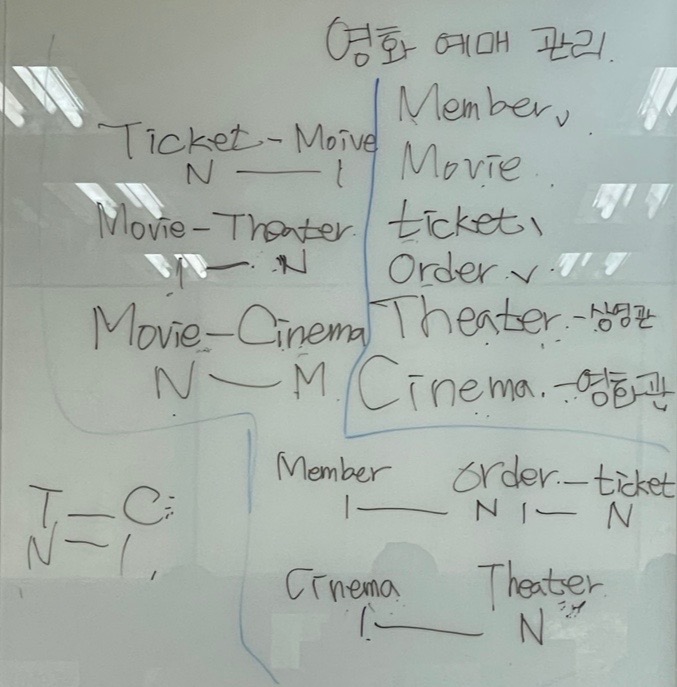 영화 예매 관리.
Member ✓
Movie
ticket
Order ✓
Theater - 상영관
Cinema. - 영화관
Ticket - Moive
N — 1
Movie - Theater
1 — N
Movie - Cinema
N — M
T — C
N — 1
Member Order - ticket
1 — N 1 — N
Cinema Theater
1 — N